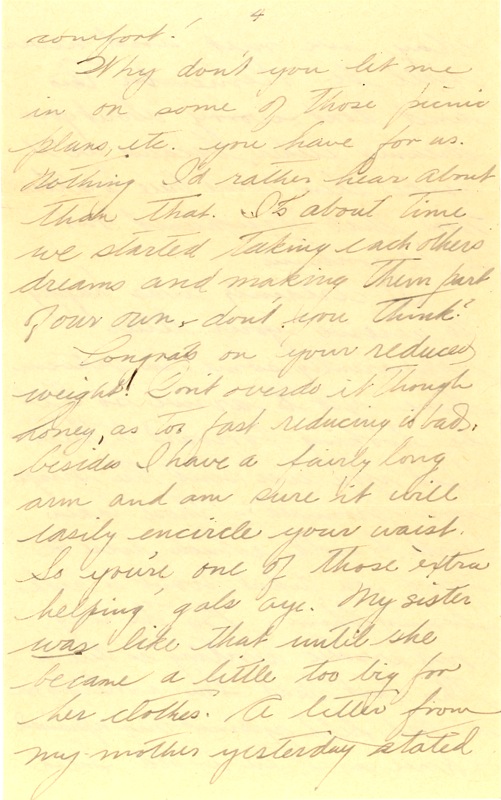 4
comfort!
Why don't you let me
in on some of those picnic
plans, etc. you have for us.
Nothing I'd rather hear about
than that. It's about time
we started taking each others
dreams and making them part
of our own, don't you think?
Congrats on your reduced
weight! Don't overdo it though
honey, as too fast reducing is bad,
besides I have a fairly long
arm and am sure it will
easily encircle your waist.
So you're one of those 'extra
helping' gals aye. My sister
was like that until she
became a little too big for
her clothes. A letter from
my mother yesterday stated